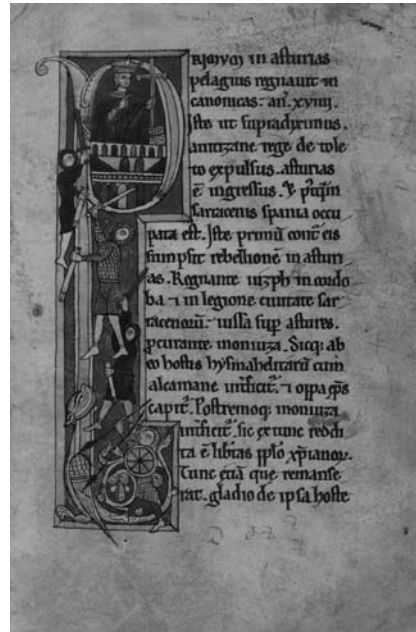 PRimum in asturias
pelagius regnauit in
canonicas. an. xviiii.
Iste ut supradiximus.
auuitizane rege de tole
to expulsus. asturias
ē ingressus. & p̄tqm̄
sarracenis spania occu
pata est. Iste primū cont̄ eis
sumpsit rebellionē in asturi
as. Regnante iuzph in cordo
ba. ⁊ in legione ciuitate sar
racenorū. iussa sup astures.
pcurante monuza. Sicq; ab
eo hostis hysmahelitarū cum
alcamane int̄ficit̄. ⁊ oppa ep̄s
capit̄. Postremoq; monuza
int̄ficit̄. sic ex tunc reddi
ta ē lib̄tas pplo xp̄ianor.
Tunc etiā que remanse
rat. gladio de ipsa hoste